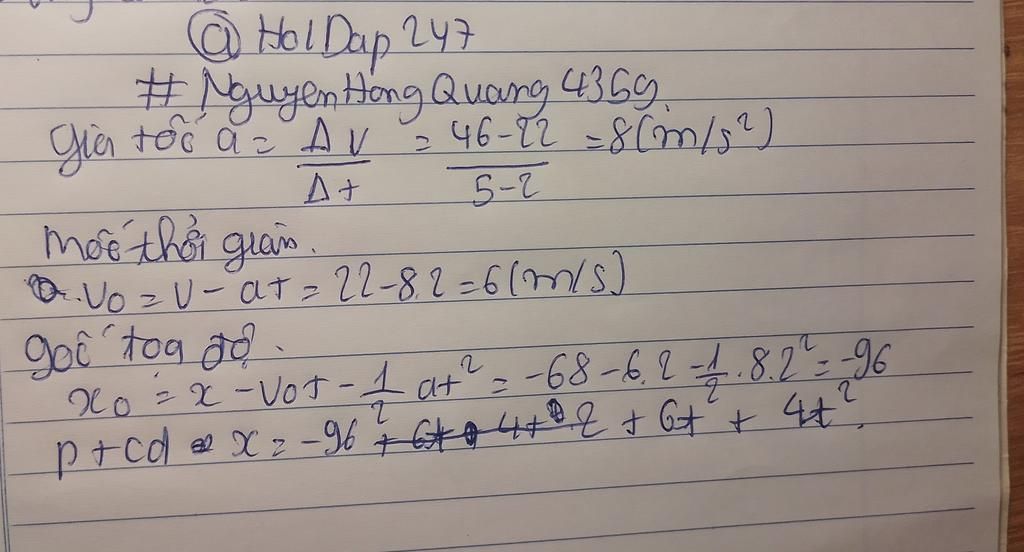 @ HoiDap 247
# NguyenHongQuang4369.
gia tốc a = Δv/Δt = (46-22)/(5-2) = 8(m/s²)
mốc thời gian.
v₀ = v - at = 22-8.2 = 6(m/s)
gốc tọa độ.
x₀ = x - v₀t - 1/2 at² = -68-6.2-1/2.8.2² = -96
ptcđ x = -96 + 6t + 4t².